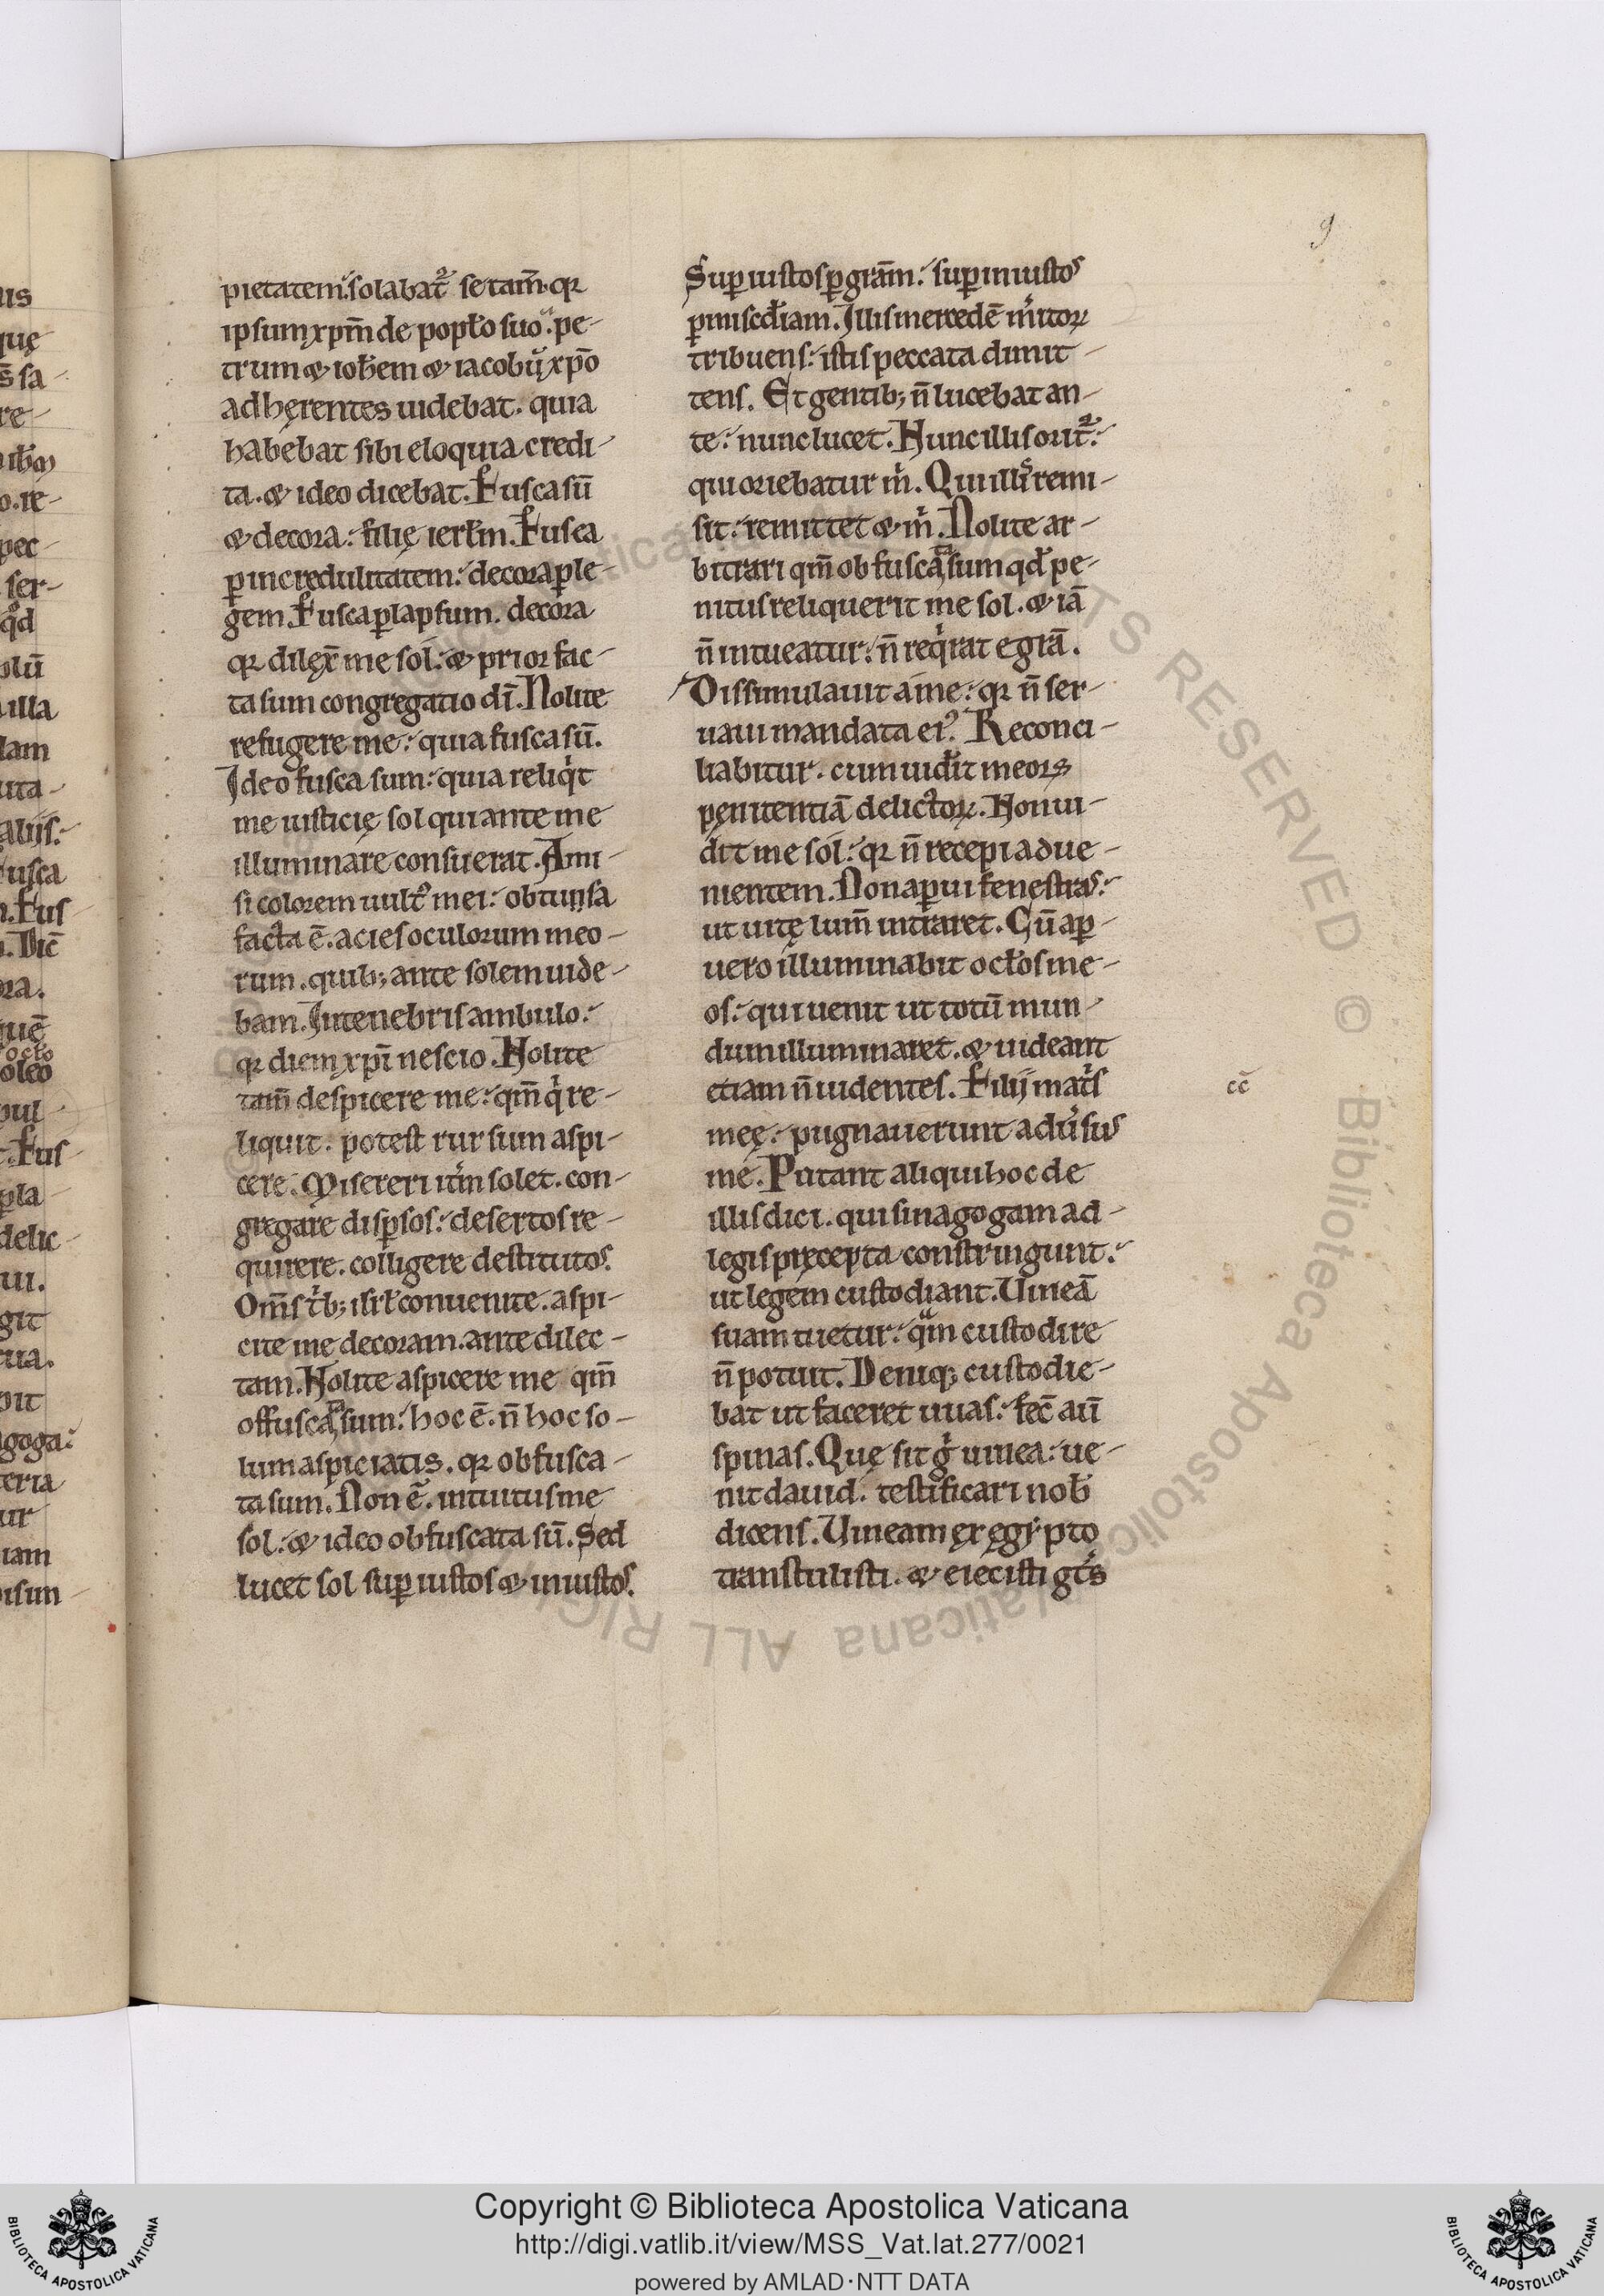 9
pietatem. solabat᷑ se tam̄. qꝛ
ipsum xp̄m de popl̶o suo. pe-
trum ⁊ ioh̄em ⁊ iacobū xp̄o
adhęrentes uidebat. quia
habebat sibi eloquia credi-
ta. ⁊ ideo dicebat. Fusca sū
⁊ decora: filię ierl̄m. Fusca
ꝑ incredulitatem: decora ꝑ le-
gem. Fusca ꝑ lapsum. decora
qꝛ dilex̄ me sol: ⁊ prior fac-
ta sum congregatio dī. Nolite
refugere me: quia fusca sū.
Ideo fusca sum: quia reliqͥt
me iusticię sol qui ante me
illuminare consuerat. Ami-
si colorem uultꝰ mei: obtunsa
facta ē. acies oculorum meo-
rum. quib; ante solem uide-
bam. In tenebris ambulo:
qꝛ diem xp̄i nescio. Nolite
tam̄ despicere me: qm̄ qͥ re-
liquit. potest rursum aspi-
cere. Misereri itͥm solet. con-
gregare disꝑsos: desertos re-
quirere. colligere destitutos.
Om̄s tͥb; isrl̄ conuenite. aspi-
cite me decoram. ante dilec-
tam. Nolite aspicere me qm̄
offuscata sum: hoc ē. n̄ hoc so-
lum aspiciatis. qꝛ obfusca-
ta sum. Non ē. intuitus me
sol: ⁊ ideo obfuscata sū. Sed
lucet sol suꝑ iustos ⁊ iniustos.
Suꝑ iustos ꝑ grām: suꝑ iniustos
ꝑ miscd̄iam. Illis mercedē mͥitoꝝ
tribuens: istis peccata dimit-
tens. Et gentib; n̄ lucebat an-
te: nunc lucet. Nunc illis orit᷑:
qui oriebatur mͥ. Qui illis remi-
sit: remittet ⁊ mͥ. Nolite ar-
bitrari qm̄ obfuscata sum qd̄ pe-
nitus reliquerit me sol. ⁊ iā
n̄ intueatur: n̄ reqͥrat egrā.
Dissimulauit a me: qꝛ n̄ ser-
uaui mandata eiꝰ. Reconci-
liabitur. cum uid̄it meoꝝ
penitentiā delictoꝝ. Non ui-
dit me sol: qꝛ n̄ recepi adue-
nientem. Non aꝑui fenestras:
ut uitę lum̄ intraret. Cū aꝑ-
uero illuminabit ocl̄os me-
os: qui uenit ut totū mun-
dum illuminaret. ⁊ uideant
etiam n̄ uidentes. Filij matͥs
meę: pugnauerunt adūsus
me. Putant aliqui hoc de
illis dici. qui sinagogam ad-
legis pręcepta constringunt:
ut legem custodiant. Uineā
suam tuetur: qͣm custodire
n̄ potuit. Deniq; custodie-
bat ut faceret uuas: fec̄ aū
spinas. Quę sit gͥ uinea: ue-
nit dauid. testificari nob̄
dicens. Uineam ex egypto
transtulisti. ⁊ eiecisti gt̄s
cc̄
Copyright © Biblioteca Apostolica Vaticana
http://digi.vatlib.it/view/MSS_Vat.lat.277/0021
powered by AMLAD·NTT DATA
BIBLIOTECA APOSTOLICA VATICANA
BIBLIOTECA APOSTOLICA VATICANA